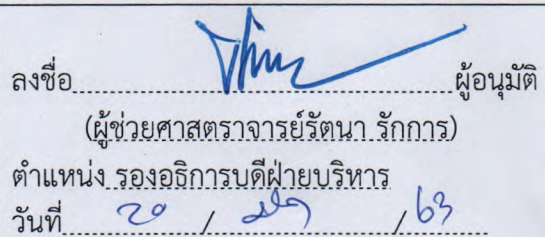 ลงชื่อ ผู้อนุมัติ
(ผู้ช่วยศาสตราจารย์รัตนา รักการ)
ตำแหน่ง รองอธิการบดีฝ่ายบริหาร
วันที่ 20 / / 63